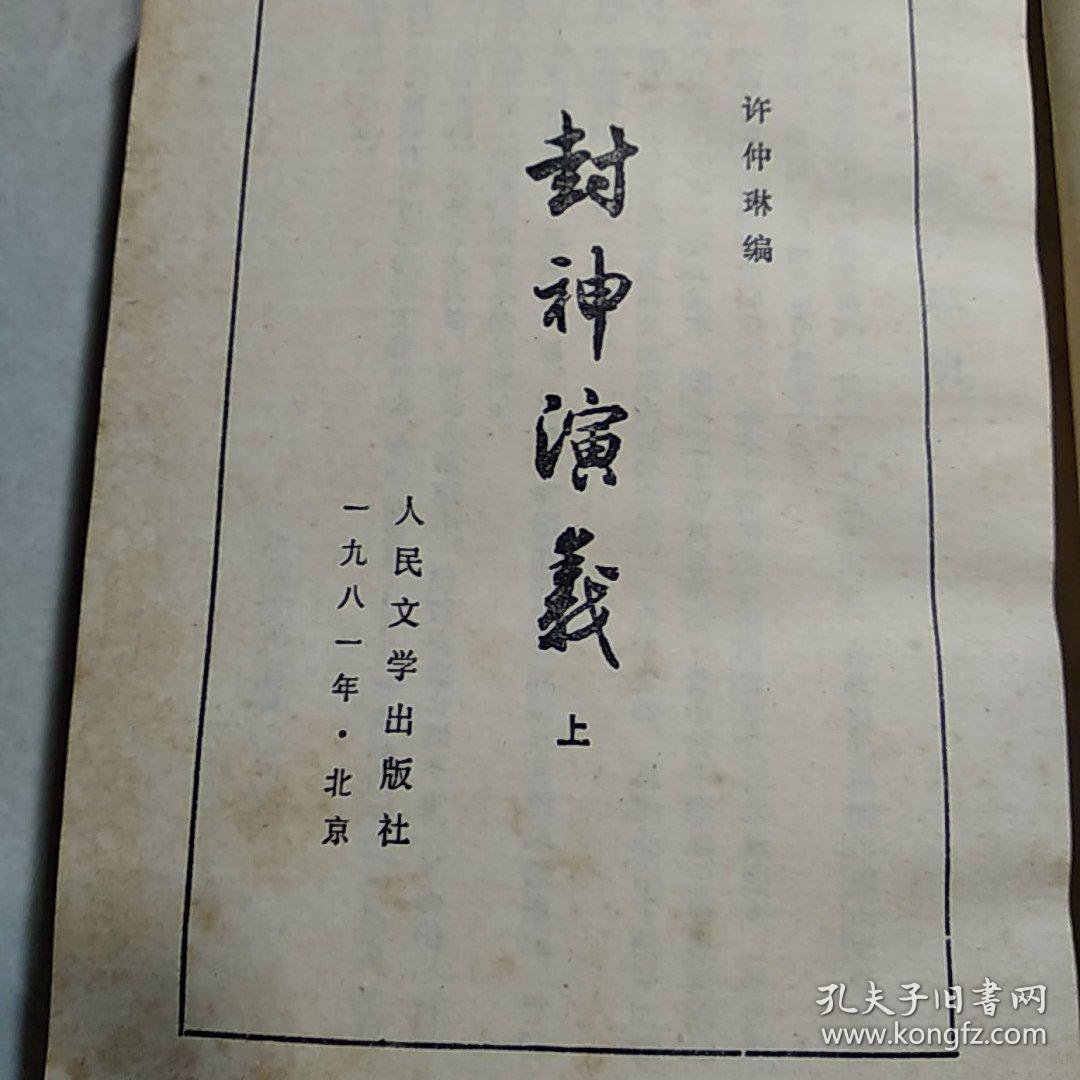 许仲琳编
封神演義
上
人民文学出版社
一九八一年·北京
孔夫子旧書网
www.kongfz.com